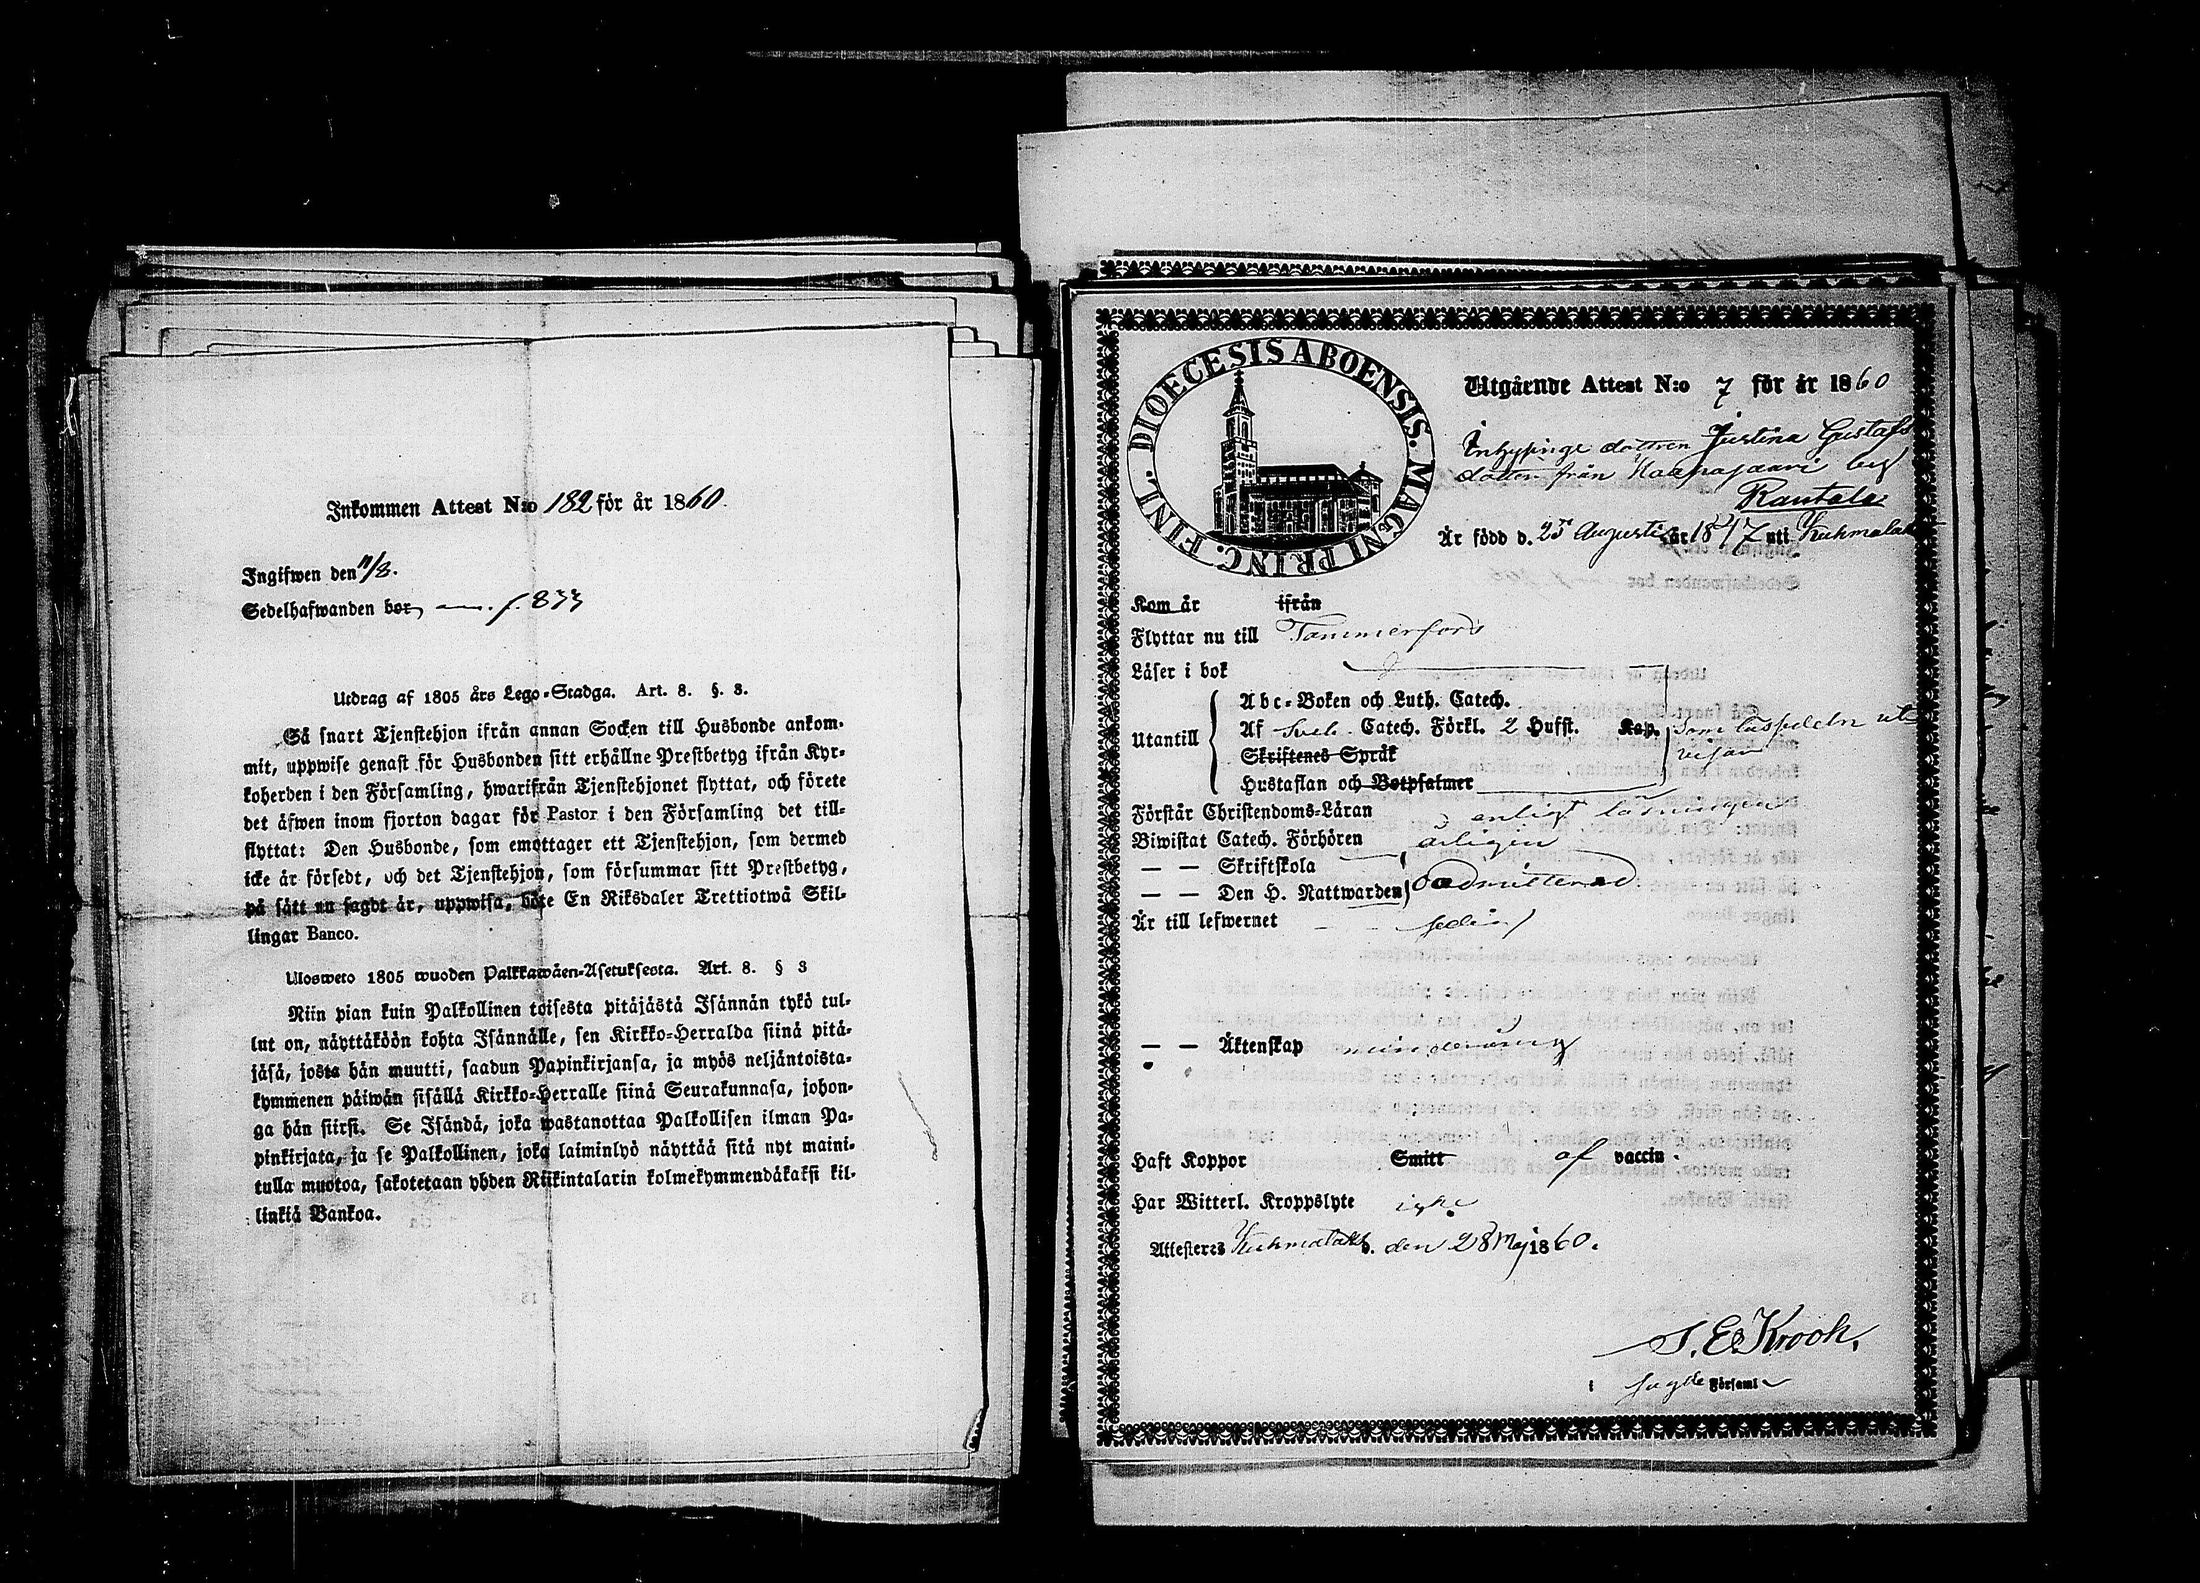 Inkommen Attest N:o 182 för år 1860.
Ingifwen den 11/8.
Sedelhafwanden bor, f. 833
Utdrag af 1805 års Lego-Stadga. Art. 8. §. 3.
Så snart Tjenstehjon ifrån annan Socken till Husbonde ankom-
mit, uppwise genast för Husbonden sitt erhållne Prestbetyg ifrån Kyr-
koherden i den Församling, hwarifrån Tjenstehjonet flyttat, och förete
det äfwen inom fjorton dagar för Pastor i den Församling det till-
flyttat: Den Husbonde, som emottager ett Tjenstehjon, som dermed
icke är försedt, och det Tjenstehjon, som försummar sitt Prestbetyg,
på sätt nu sagdt är, uppwisa, böte En Riksdaler Trettiotwå Skil-
lingar Banco.
Ulosweto 1805 wuoden Palkkawäen-Asetuksesta. Art. 8. § 3
Niin pian kuin Palkollinen toisesta pitäjästä Isännän tykö tul-
lut on, näyttäköön kohta Isännälle, sen Kirkko-Herralda siinä pitä-
jäsä, josta hän muutti, saadun Papinkirjansa, ja myös neljäntoista-
kymmenen päiwän sisällä Kirkko-Herralle siinä Seurakunnasa, johon-
ga hän siirsi. Se Isändä, joka wastanottaa Palkollisen ilman Pa-
pinkirjata, ja se Palkollinen, joka laiminlyö näyttää sitä nyt maini-
tulla muotoa, sakotetaan yhden Riikintalarin kolmekymmendäkaksi kil-
linkiä Bankoa.
DIOECESIS ABOENSIS. MAGNI PRINC. FINL.
Utgående Attest N:o 7 för år 1860
Inhysinge dottren Justina Gustafs
dotter från Haapajaari by
Rantala
Är född d. 25 Augusti år 1817 uti Kuhmalak
Kom år ifrån
Flyttar nu till Tammerfors
Läser i bok
Utantill
Abc-Boken och Luth. Catech.
Af Sveb. Catech. Förkl. 2 Hufst. Kap.
Skriftenes Språk
Hustaflan och Botpsalmer
Som läspedeln ut-
visar
Förstår Christendoms-Läran enligt läsningen
Biwistat Catech. Förhören årligen
— — Skriftskola
— — Den H. Nattwarden oadmitterad
Är till lefwernet
— — Äktenskap
Haft Koppor Smitt af vaccin.
Har Witterl. Kroppslyte icke
Attesteres Kuhmalaks. den 28 Maj 1860.
S. E. Krook.
i sagde Församl